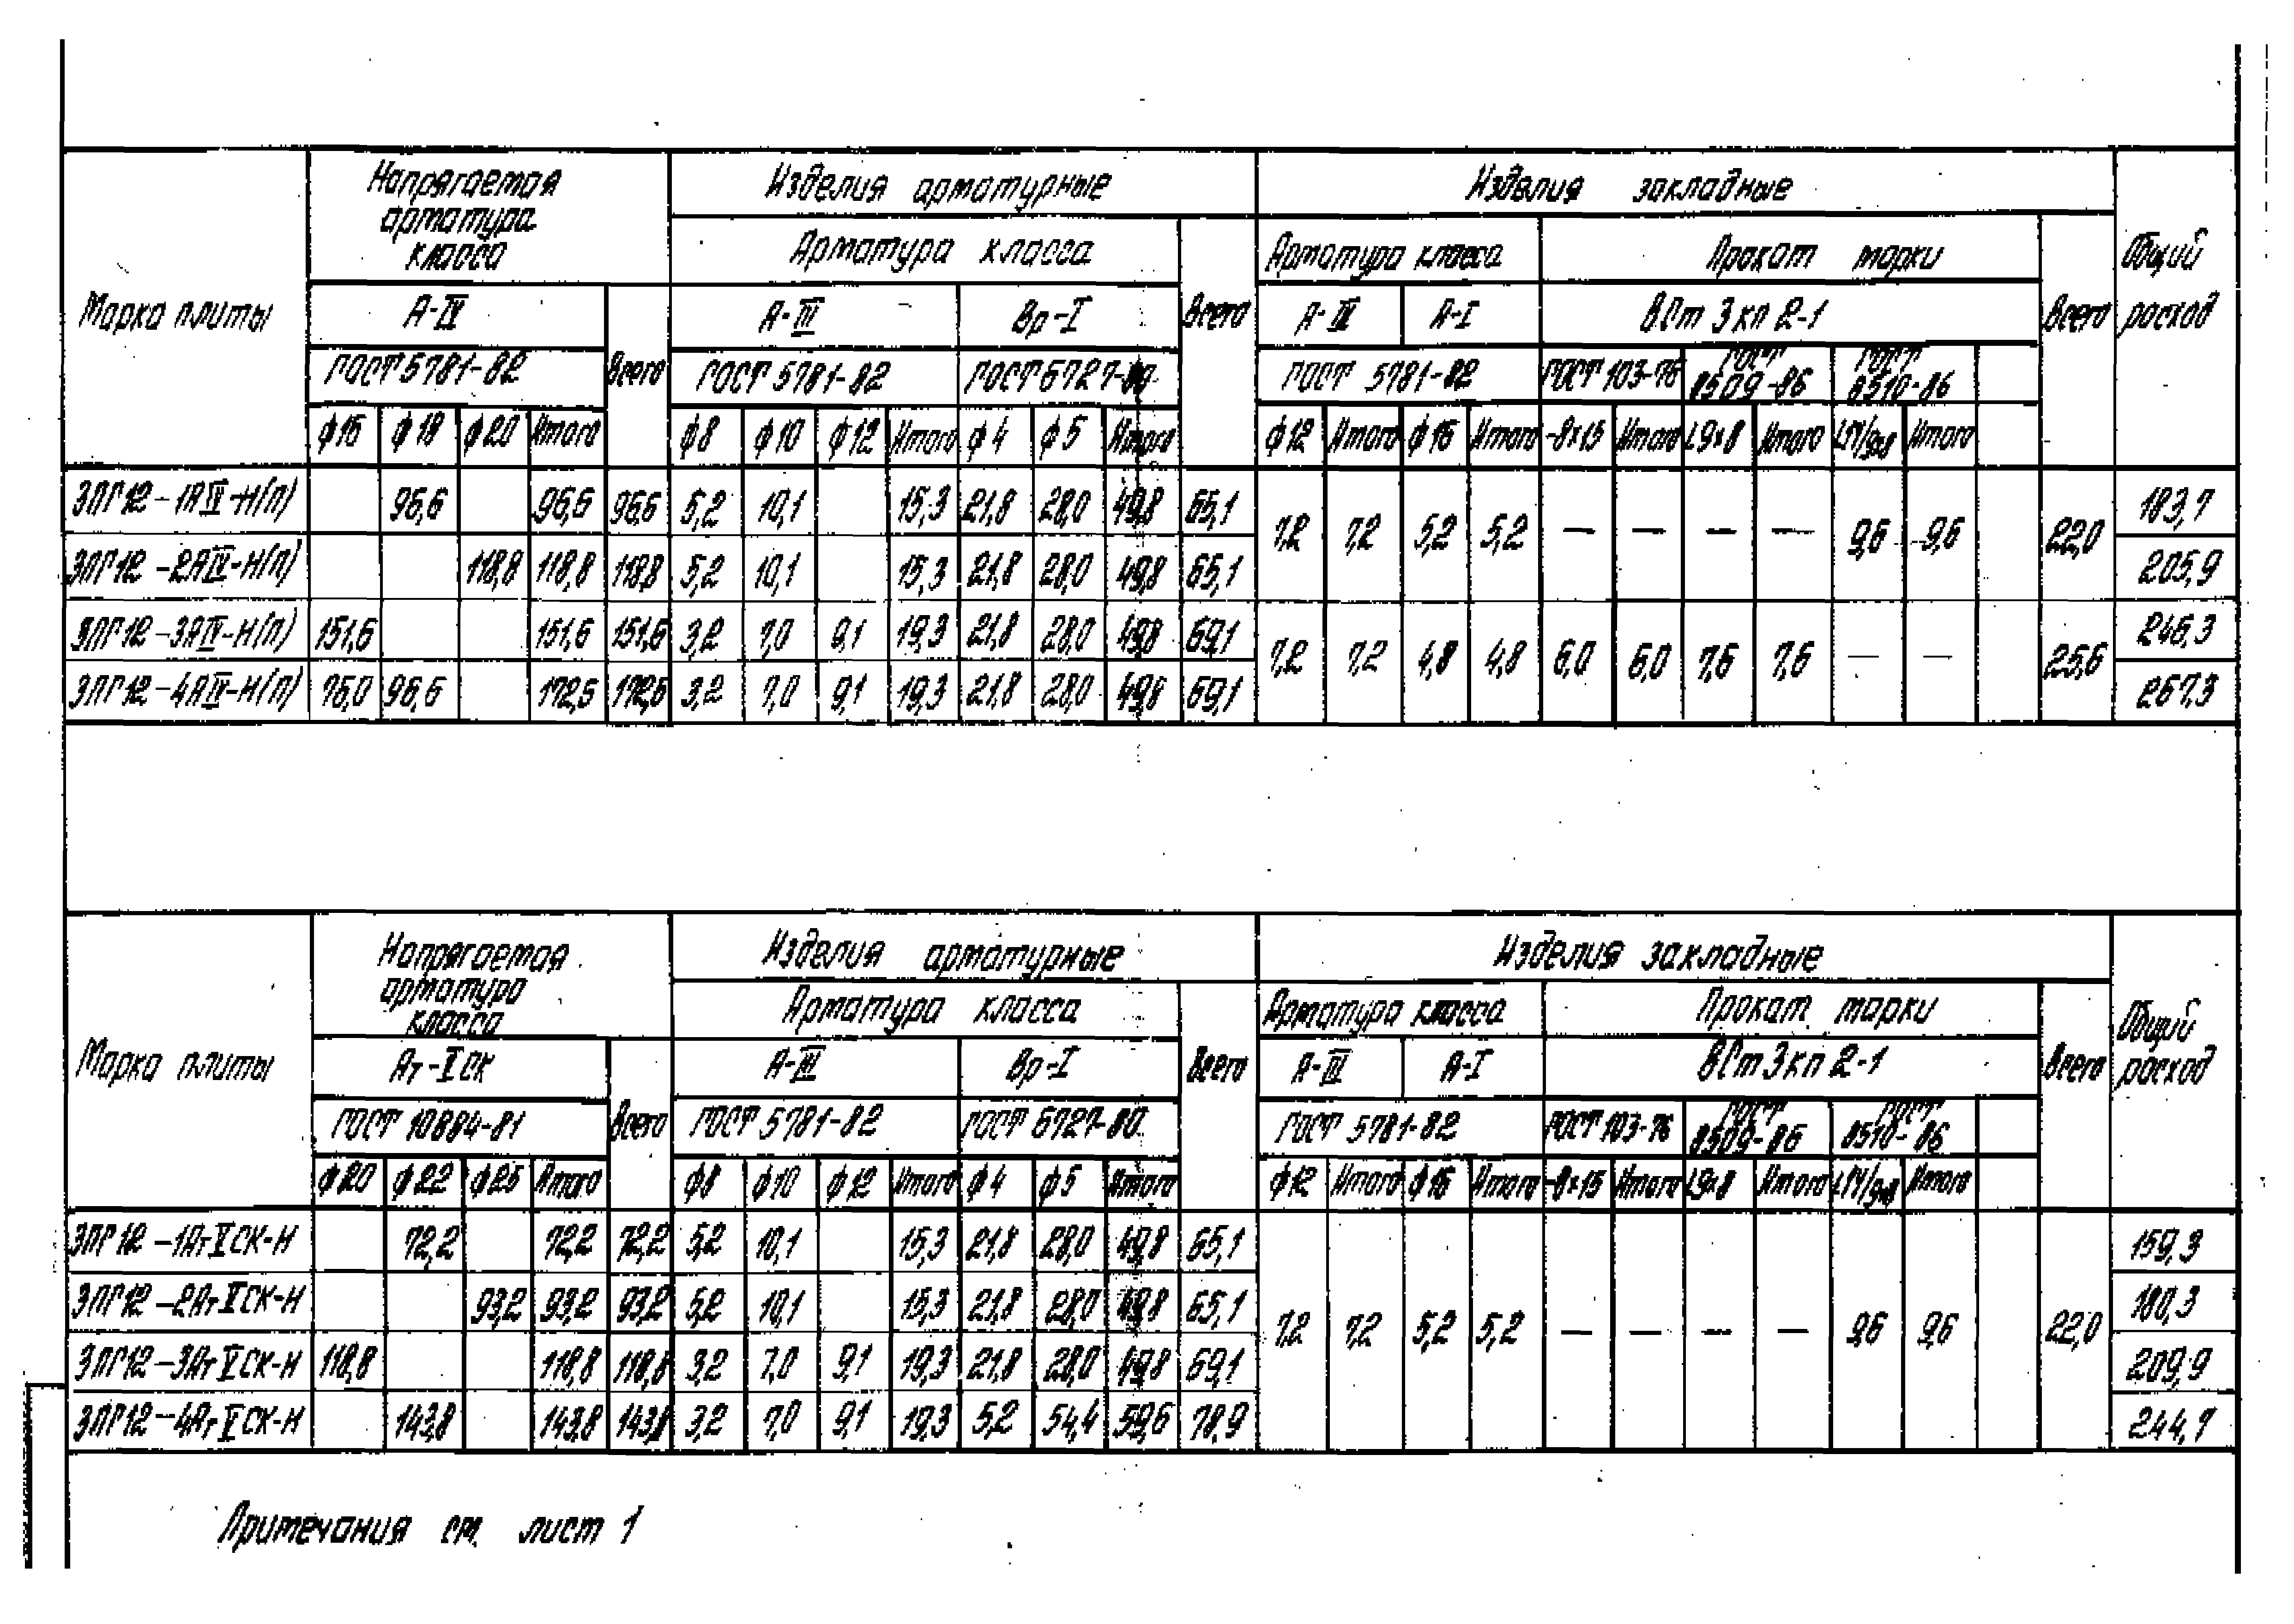 Марка плиты | Напрягаемая арматура класса | Изделия арматурные | Изделия закладные | Общий расход
Арматура класса | Всего | Арматура класса | Прокат марки | Всего
А-IV | Всего | А-III | Вр-I | А-III | А-I | ВСт 3 кп 2-1
ГОСТ 5781-82 | ГОСТ 5781-82 | ГОСТ 6727-80 | ГОСТ 5781-82 | ГОСТ 103-76 | ГОСТ 8509-86 | ГОСТ 8510-86
ф16 | ф18 | ф20 | Итого | ф8 | ф10 | ф12 | Итого | ф4 | ф5 | Итого | ф12 | Итого | ф16 | Итого | -8×15 | Итого | L9×8 | Итого | L14/9×8 | Итого
3ПГ12-1АIV-Н(П) | 96,6 | 96,6 | 96,6 | 5,2 | 10,1 | 15,3 | 21,8 | 28,0 | 49,8 | 65,1 | 7,2 | 7,2 | 5,2 | 5,2 | — | — | — | — | 9,6 | 9,6 | 22,0 | 183,7
3ПГ12-2АIV-Н(П) | 118,8 | 118,8 | 118,8 | 5,2 | 10,1 | 15,3 | 21,8 | 28,0 | 49,8 | 65,1 | 205,9
3ПГ12-3АIV-Н(П) | 151,6 | 151,6 | 151,6 | 3,2 | 7,0 | 9,1 | 19,3 | 21,8 | 28,0 | 49,8 | 69,1 | 7,2 | 7,2 | 4,8 | 4,8 | 6,0 | 6,0 | 7,6 | 7,6 | — | — | 25,6 | 246,3
3ПГ12-4АIV-Н(П) | 76,0 | 96,6 | 172,6 | 172,6 | 3,2 | 7,0 | 9,1 | 19,3 | 21,8 | 28,0 | 49,8 | 69,1 | 267,3
Марка плиты | Напрягаемая арматура класса | Изделия арматурные | Изделия закладные | Общий расход
Арматура класса | Всего | Арматура класса | Прокат марки | Всего
Ат-V СК | Всего | А-III | Вр-I | А-III | А-I | ВСт 3 кп 2-1
ГОСТ 10884-81 | ГОСТ 5781-82 | ГОСТ 6727-80 | ГОСТ 5781-82 | ГОСТ 103-76 | ГОСТ 8509-86 | ГОСТ 8510-86
ф20 | ф22 | ф25 | Итого | ф8 | ф10 | ф12 | Итого | ф4 | ф5 | Итого | ф12 | Итого | ф16 | Итого | -8×15 | Итого | L9×8 | Итого | L14/9×8 | Итого
3ПГ12-1АтVСК-Н | 72,2 | 72,2 | 72,2 | 5,2 | 10,1 | 15,3 | 21,8 | 28,0 | 49,8 | 65,1 | 7,2 | 7,2 | 5,2 | 5,2 | — | — | — | — | 9,6 | 9,6 | 22,0 | 159,3
3ПГ12-2АтVСК-Н | 93,2 | 93,2 | 93,2 | 5,2 | 10,1 | 15,3 | 21,8 | 28,0 | 49,8 | 65,1 | 180,3
3ПГ12-3АтVСК-Н | 118,8 | 118,8 | 118,8 | 3,2 | 7,0 | 9,1 | 19,3 | 21,8 | 28,0 | 49,8 | 69,1 | 209,9
3ПГ12-4АтVСК-Н | 143,8 | 143,8 | 143,8 | 3,2 | 7,0 | 9,1 | 19,3 | 5,2 | 54,4 | 59,6 | 78,9 | 244,7
Примечания см. лист 1